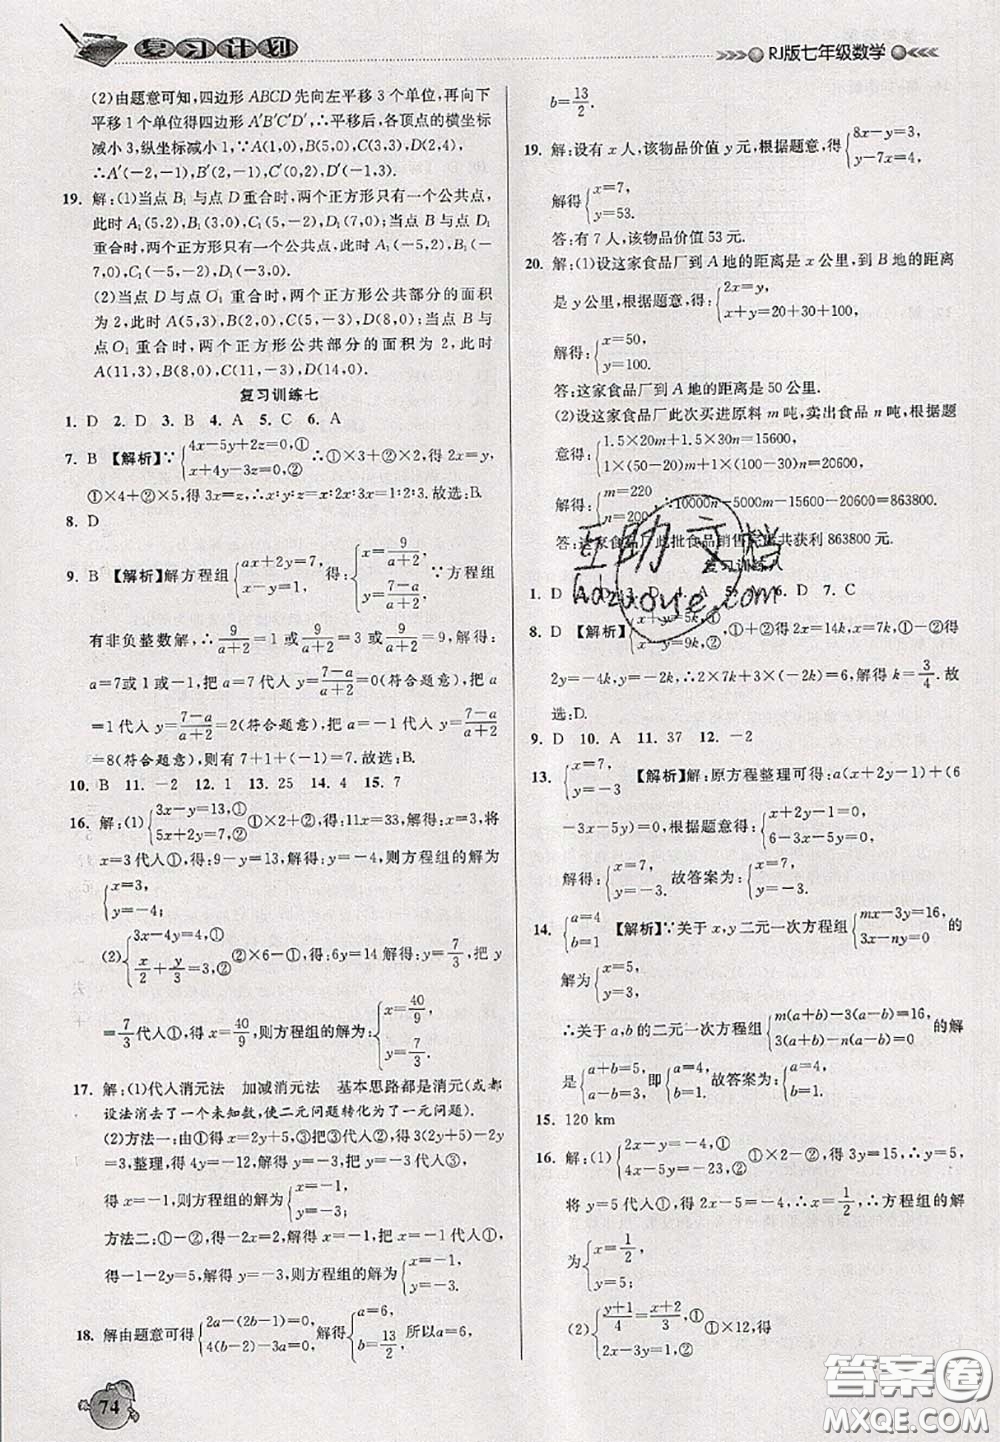 复习计划
RJ版七年级数学
(2)由题意可知,四边形 ABCD 先向左平移 3 个单位,再向下
平移 1 个单位得四边形 A′B′C′D′,∴平移后,各顶点的横坐标
减小 3,纵坐标减小 1,∵A(1,0),B(3,0),C(3,1),D(1,4),
∴A′(-2,-1),B′(0,-1),C′(0,0),D′(-1,3).
19. 解:(1)当点 B₁ 与点 D 重合时,两个正方形只有一个公共点,
此时 A₁(5,2),B₁(3,0),C₁(5,-2),D₁(7,0);当点 B 与点 D₁
重合时,两个正方形只有一个公共点,此时 A₁(-5,2),B₁(-7,
0),C₁(-5,-2),D₁(-3,0).
(2)当点 D 与点 O₁ 重合时,两个正方形公共部分的面积
为 2,此时 A(5,3),B(2,0),C(5,-3),D(8,0);
当点O₁ 重合时,两个正方形公共部分的面积为 2,此时
A(11,3),B(8,0),C(11,-3),D(14,0).
复习训练七
1. D 2. D 3. B 4. A 5. C 6. A
7. B 【解析】∵{4x-5y+2z=0,① x+4y-3z=0,② ∴①×3+②×2,得 2x=y,
①×4+②×5,得 3x=z,∴x∶y∶z=x∶2x∶3x=1∶2∶3.故选:B.
8. D
9. B 【解析】解方程组{ax+2y=7 x-y=1, 得:{x=9/(a+2) y=(7-a)/(a+2) ∵方程组
有非负整数解,∴9/(a+2)=1 或9/(a+2)=3 或9/(a+2)=9,解得:
a=7或1或-1,把 a=7 代入(7-a)/(a+2)=0(符合题意),把 a
=1代入y=(7-a)/(a+2)=2(符合题意),把 a=-1 代入y=(7-a)/(a+2)
=8(符合题意),则有7+1+(-1)=7.故选:B.
10. B 11. -2 12. 1 13. 25 14. 4 15. 7
16. 解:(1){3x-y=13,① 5x+2y=7,② ①×2+②,得:11x=33,解得:x=3,将
x=3代入①,得:9-y=13,解得:y=-4,则方程组的解为
{x=3, y=-4;
(2){3x-4y=4,① x/2+y/3=3,② ②×6-①,得:6y=14,解得:y=7/3,将 y
=7/3代入①,得 x=40/9,则方程组的解为:{x=40/9, y=7/3.
17. 解:(1)代入消元法 加减消元法 基本思路都是消元(或都
设法消去了一个未知数,使二元问题转化为了一元问题).
(2)方法一:由①得x=2y+5,③把③代入②得3(2y+5)-2y=
3,整理,得 4y=-12,解得 y=-3,把 y=-3 代入③,
得 x=-1,则方程组的解为{x=-1, y=-3;
方法二:①-②,得-2x=2,解得:x=-1,把 x=-1 代入①
得-1-2y=5,解得y=-3,则方程组的解为{x=-1, y=-3
18. 解由题意可得{2a-(2b-1)=0 4(b-2)-3a=0 解得{a=6, b=13/2 所以a=6,
b=13/2.
19. 解:设有 x 人,该物品价值 y 元,根据题意,得{8x-y=3, y-7x=4,
解得{x=7, y=53.
答:有 7 人,该物品价值 53 元.
20. 解:(1)设这家食品厂到 A 地的距离是 x 公里,到 B 地的距离
是 y 公里,根据题意,得:{2x=y, x+y=20+30+100,
解得:{x=50, y=100.
答:这家食品厂到 A 地的距离是 50 公里.
(2)设这家食品厂此次买进原料 m 吨,卖出食品 n 吨,根据题
意得:{1.5×20m+1.5×30n=15600, 1×(50-20)m+1×(100-30)n=20600,
解得:{m=220 n=200, ∴10000n-5000m-15600-20600=863800.
答:这家食品厂此批食品销售完后共获利 863800 元.
复习训练八
1. D 6. D 7. C
8. D 【解析】{x+y=5k,① x-y=9k,② ①+②得 2x=14k,x=7k,①-②得
2y=-4k,y=-2k,∴2×7k-3×(-2k)=15,解得 k=3/4.故
选:D.
9. D 10. A 11. 37 12. -2
13. {x=7, y=-3 【解析】解:原方程整理可得:a(x+2y-1)+(6
-3x-5y)=0,根据题意得:{x+2y-1=0, 6-3x-5y=0,
解得:{x=7, y=-3. 故答案为:{x=7, y=-3.
14. {a=4 b=1 【解析】∵关于 x,y 二元一次方程组{mx-3y=16, 3x-ny=0 的
解为{x=5, y=3,
∴关于 a,b 的二元一次方程组{m(a+b)-3(a-b)=16, 3(a+b)-n(a-b)=0 的解
是{a+b=5, a-b=3, 即{a=4, b=1. 故答案为:{a=4, b=1.
15. 120 km
16. 解:(1){2x-y=-4,① 4x-5y=-23,② ①×2-②,得 3y=15,∴y=5,
将 y=5 代入①,得 2x-5=-4,∴x=1/2,∴方程组的解
为{x=1/2, y=5;
(2){(y+1)/4=(x+2)/3,① 2x-3y=1,② ①×12,得
74
互助文档
Hdzuoye.com
答案圈
MXQE.COM